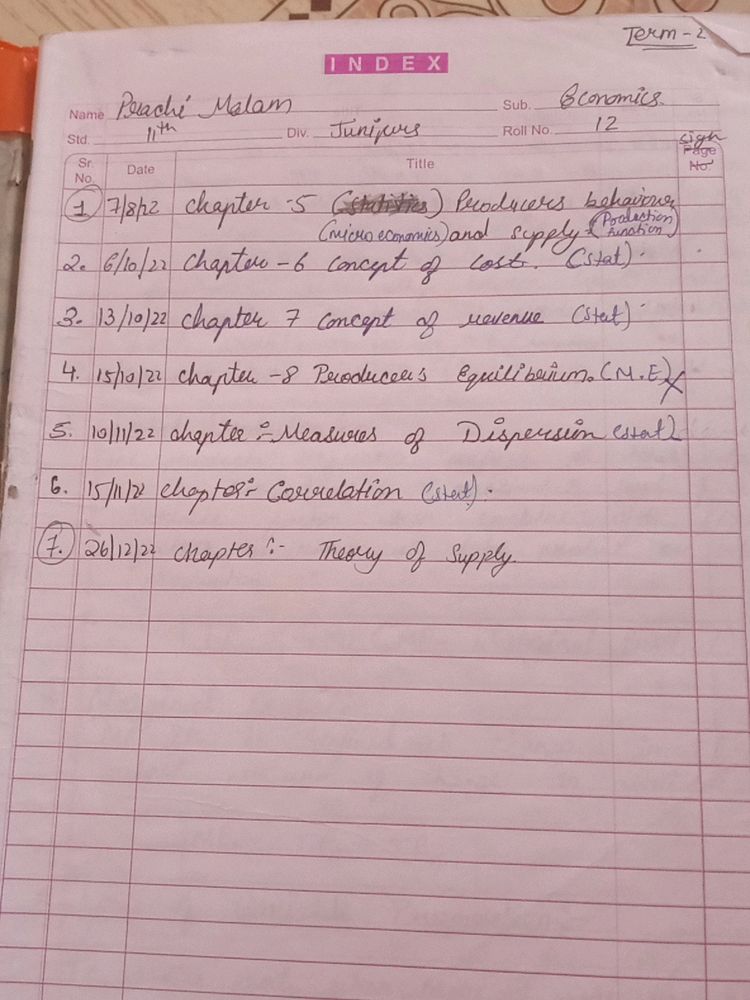 Term - 2
INDEX
Name Prachi Malam Sub. Economics.
Std. 11th Div. Junipers Roll No. 12
Sr. No. Date Title sign Page No.
1 7/8/22 chapter - 5 (statistics) Producers behaviour
(micro economics) and supply (Production function)
2. 6/10/22 Chapter - 6 Concept of cost. (stat)
3. 13/10/22 chapter 7 Concept of revenue (stat)
4. 15/10/22 chapter - 8 Producers Equilibrium. (M.E)
5. 10/11/22 chapter :- Measures of Dispersion (stat)
6. 15/11/22 chapter :- Correlation (stat).
7. 26/12/22 chapter :- Theory of Supply.